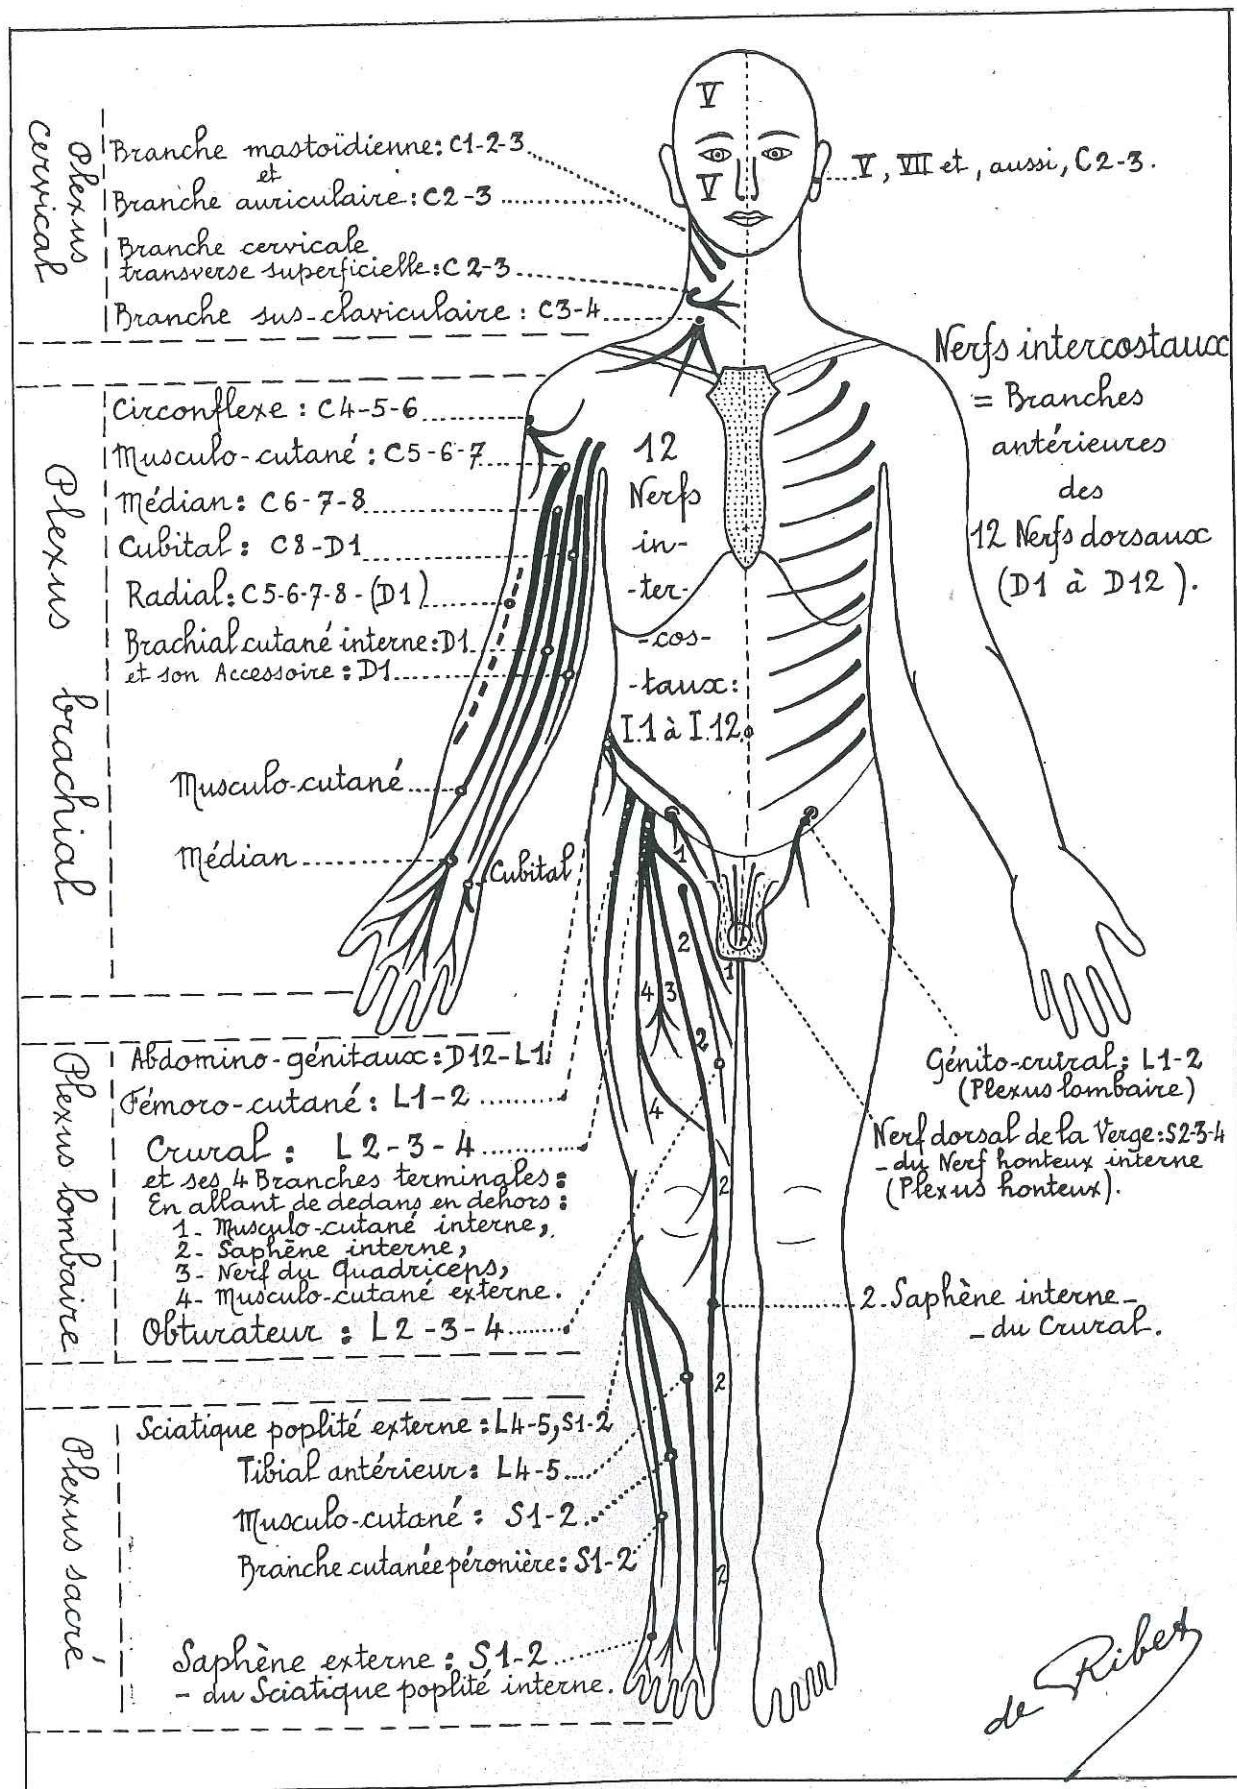 Plexus cervical
Branche mastoïdienne: C1-2-3
et
Branche auriculaire: C2-3
Branche cervicale
transverse superficielle: C2-3
Branche sus-claviculaire: C3-4
V
V
V, VII et, aussi, C2-3.
Plexus brachial
Circonflexe: C4-5-6
Musculo-cutané: C5-6-7
Médian: C6-7-8
Cubital: C8-D1
Radial: C5-6-7-8-(D1)
Brachial cutané interne: D1
et son Accessoire: D1
Musculo-cutané
Médian
Cubital
12
Nerfs
in-
-ter-
-cos-
-taux:
I.1 à I.12
Nerfs intercostaux
= Branches
antérieures
des
12 Nerfs dorsaux
(D1 à D12).
Plexus lombaire
Abdomino-génitaux: D12-L1
Fémoro-cutané: L1-2
Crural: L2-3-4
et ses 4 Branches terminales:
En allant de dedans en dehors:
1- Musculo-cutané interne,
2- Saphène interne,
3- Nerf du Quadriceps,
4- Musculo-cutané externe.
Obturateur: L2-3-4
1
2
1
4
3
2
4
2
2
2
Génito-crural: L1-2
(Plexus lombaire)
Nerf dorsal de la Verge: S2-3-4
-du Nerf honteux interne
(Plexus honteux).
2. Saphène interne-
-du Crural.
Plexus sacré
Sciatique poplité externe: L4-5, S1-2
Tibial antérieur: L4-5
Musculo-cutané: S1-2
Branche cutanée péronière: S1-2
Saphène externe: S1-2
- du Sciatique poplité interne.
de Ribet